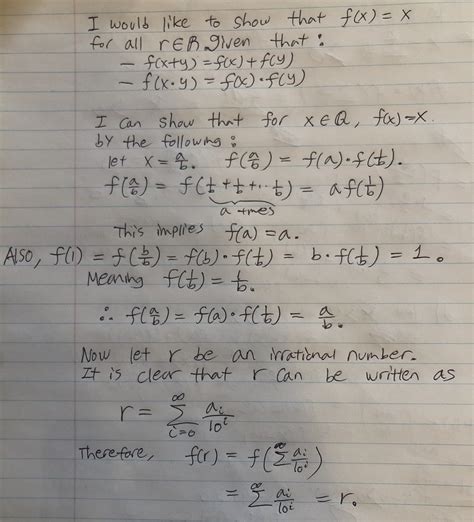 I would like to show that f(x) = x
for all r∈R given that :
– f(x+y) = f(x) + f(y)
– f(x·y) = f(x)·f(y)
I can show that for x∈Q, f(x)=x
by the following :
let x = a/b. f(a/b) = f(a)·f(1/b).
f(a/b) = f(1/b + 1/b + ·· 1/b) = a f(1/b)
a times
This implies f(a) = a.
Also, f(1) = f(b/b) = f(b)·f(1/b) = b·f(1/b) = 1.
Meaning f(1/b) = 1/b.
∴ f(a/b) = f(a)·f(1/b) = a/b.
Now let r be an irrational number.
It is clear that r can be written as
r = ∑_{i=0}^{∞} a_i/10^i
Therefore, f(r) = f(∑^{∞} a_i/10^i)
= ∑^{∞} a_i/10^i = r.